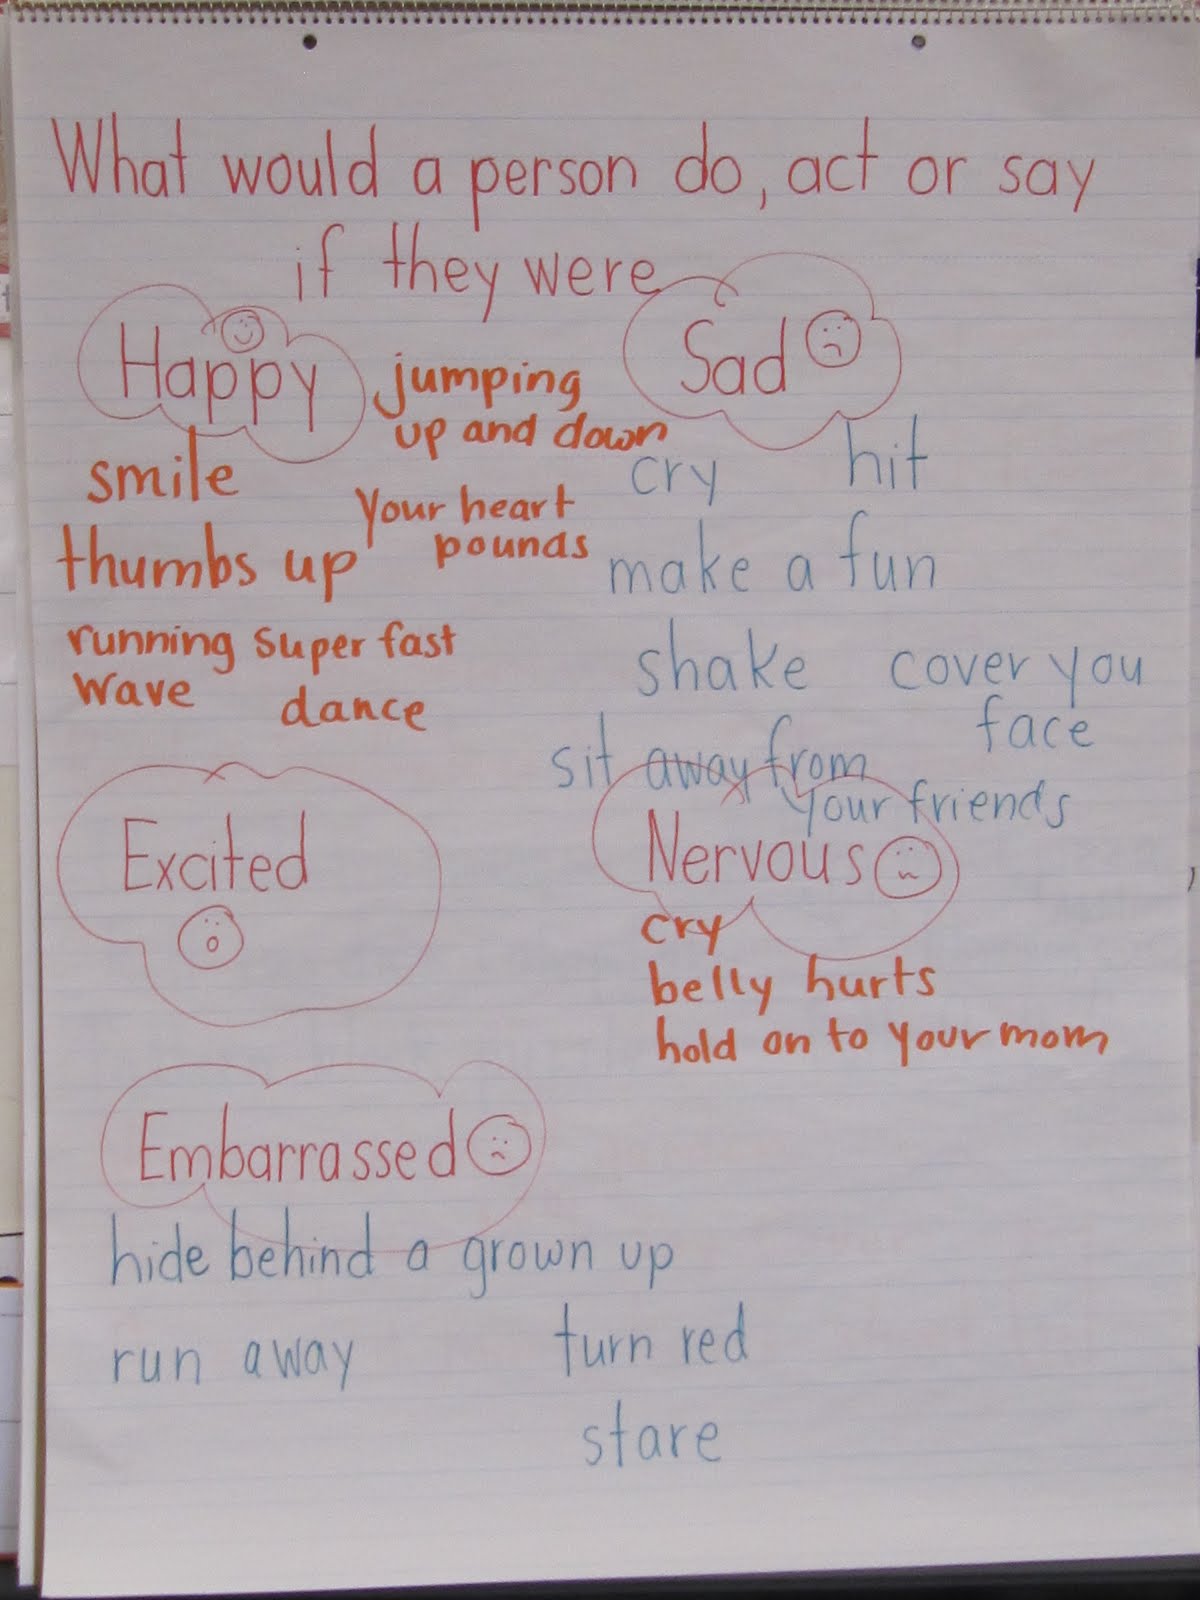 What would a person do, act or say
if they were
Happy
jumping
up and down
smile
Your heart
pounds
thumbs up
running super fast
wave
dance
Sad
cry
hit
make a fun
shake
cover you
face
sit away from
your friends
Excited
Nervous
cry
belly hurts
hold on to your mom
Embarrassed
hide behind a grown up
run away
turn red
stare